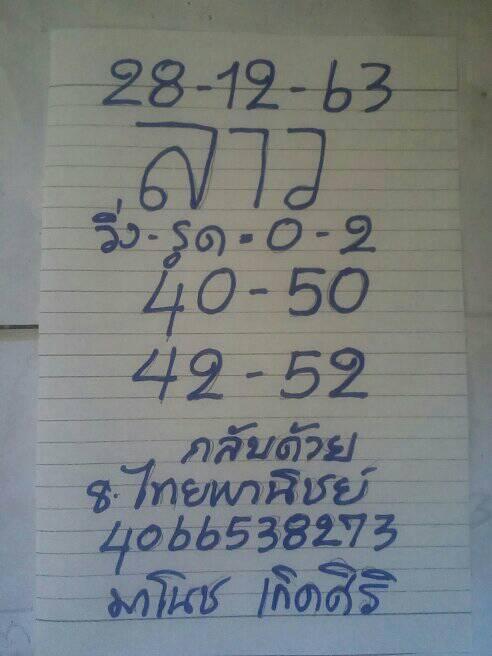 28-12-63
ลาว
วิ่ง-รูด=0-2
40-50
42-52
กลับด้วย
ธ.ไทยพานิชย์
4066538273
มาโนช เกิดศิริ